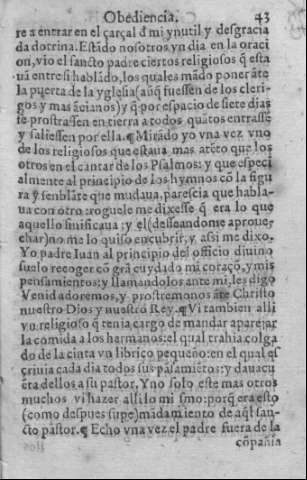 Obediencia. 43
re a entrar en el çarçal d mi ynutil y desgracia
da dotrina. Estādo nosotros yn dia en la oraci
on, vio el sancto padre ciertos religiosos q̄ esta
uā entre si hablādo, los quales mādo poner āte
la puerta de la yglesia (aūq̄ fuessen de los cleri-
gos y mas ācianos) y q̄ por espacio de siete dias
se prostrassen en tierra a todos quātos entrassē
y saliessen por ella. ¶ Mirādo yo vna vez vno
de los religiosos que estaua mas atēto que los
otros en el cantar de los Psalmos: y que especi
almente al principio de los hymnos cō la figu
ra y semblāte que mudaua, parescia que habla-
ua con otro: roguele me dixesse q̄ era lo que
aquello sinificaua: y el (desseandome aproue-
char) no me lo quiso encubrir, y assi me dixo.
Yo padre Iuan al principio del officio diuino
suelo recoger cō grā cuydado mi coraçō, y mis
pensamientos: y llamandolos ante mi, les digo
Venid adoremos, y prostremonos āte Christo
nuestro Dios y nuestro Rey. ¶ Vi tambien alli
vn religioso q̄ tenia cargo de mandar aparejar
la comida a los hermanos: el qual trahia colga
do de la cinta vn librico pequeño: en el qual es
criuia cada dia todos sus pēsamiētos: y daua cu
ēta dellos a su pastor. Y no solo este mas otros
muchos vi hazer alli lo mismo: porq̄ era esto
(como despues supe) mādamiento de aq̄l san-
cto pastor. ¶ Echo vna vez el padre fuera de la
cōpañia